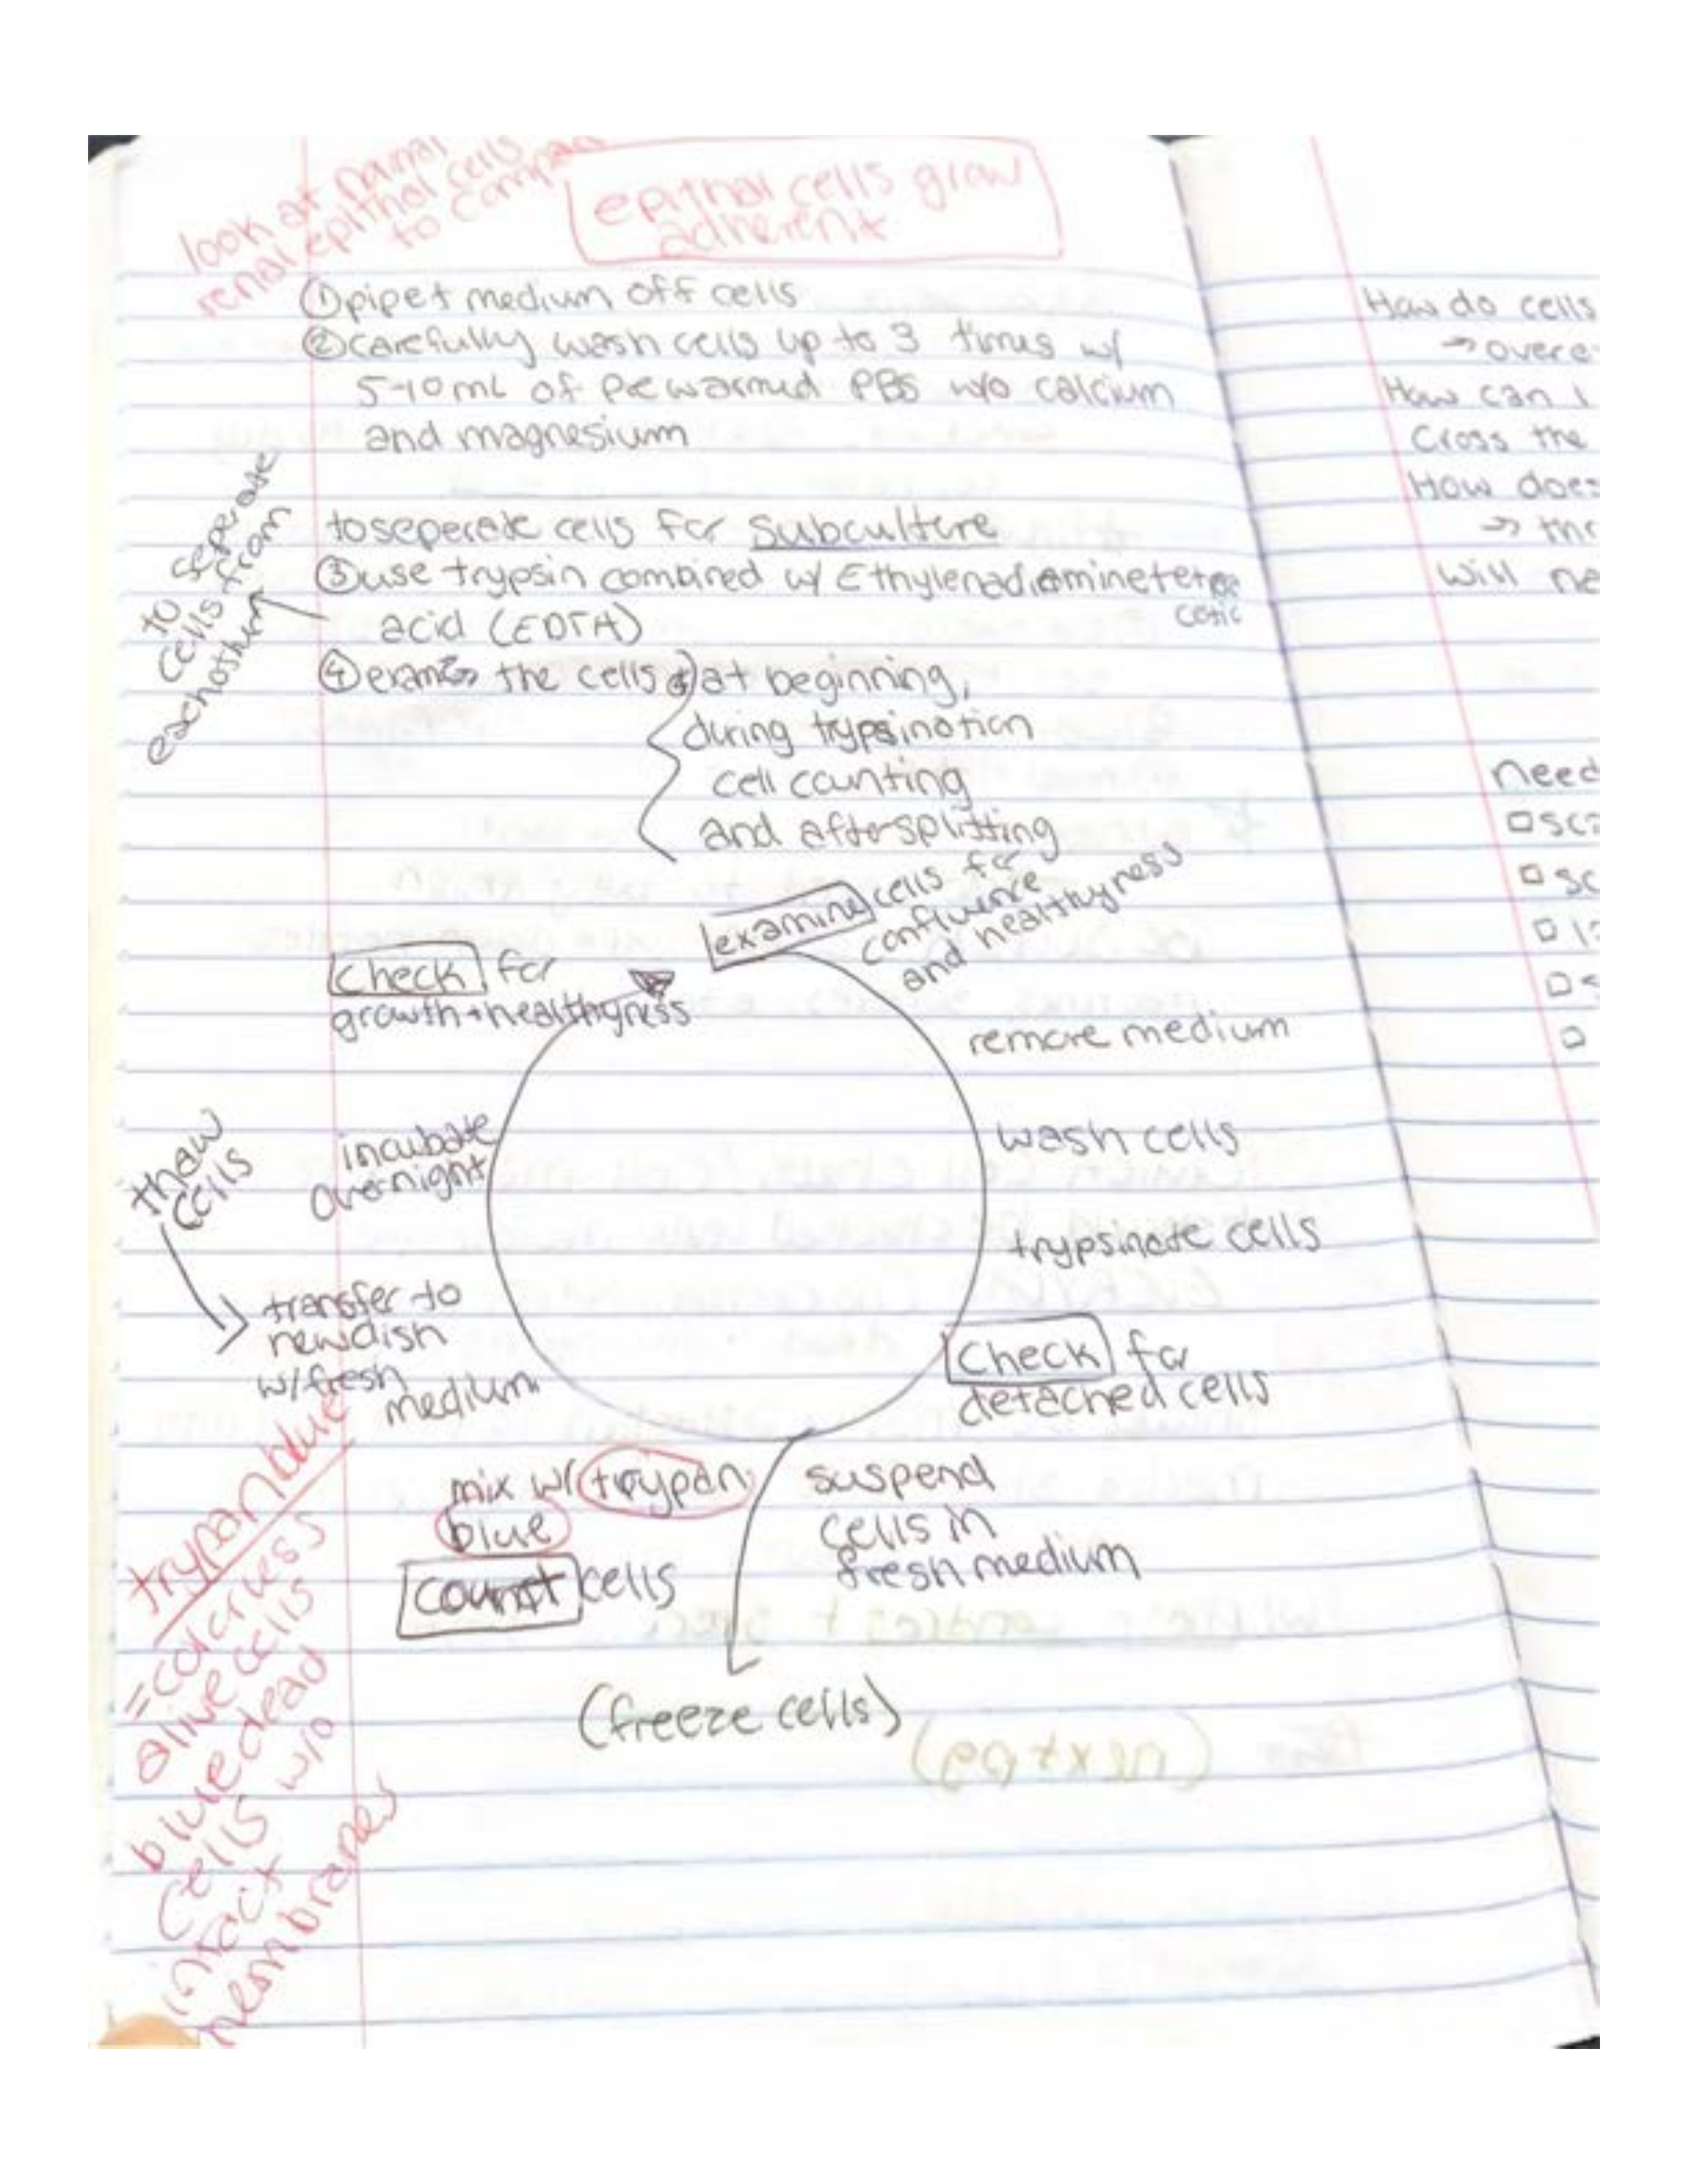 look at normal
renal epithal cells
to compare
epithal cells grow
adherent
①pipet medium off cells
②carefully wash cells up to 3 times w/
5-10mL of prewarmed PBS w/o calcium
and magnesium
to seperate cells for subculture
③use trypsin combined w/ Ethylenadiaminetetra
cetic
acid (EDTA)
to seperate
cells from
eachother
④ the cells at beginning,
during trypsination
cell counting
and after splitting
examine cells for
confluence
and healthyness
remove medium
wash cells
trypsinate cells
check for
detached cells
suspend
cells in
fresh medium
(freeze cells)
mix w/ trypan
blue
count cells
transfer to
new dish
w/ fresh
medium
thaw
cells
incubate
overnight
check for
growth + healthyness
trypan blue
= colorless
alive cells
blue dead
cells w/o
intact
membranes
(next pg)
How do cells
→ overe
How can I
Cross the
How does
→ thr
Will ne
need